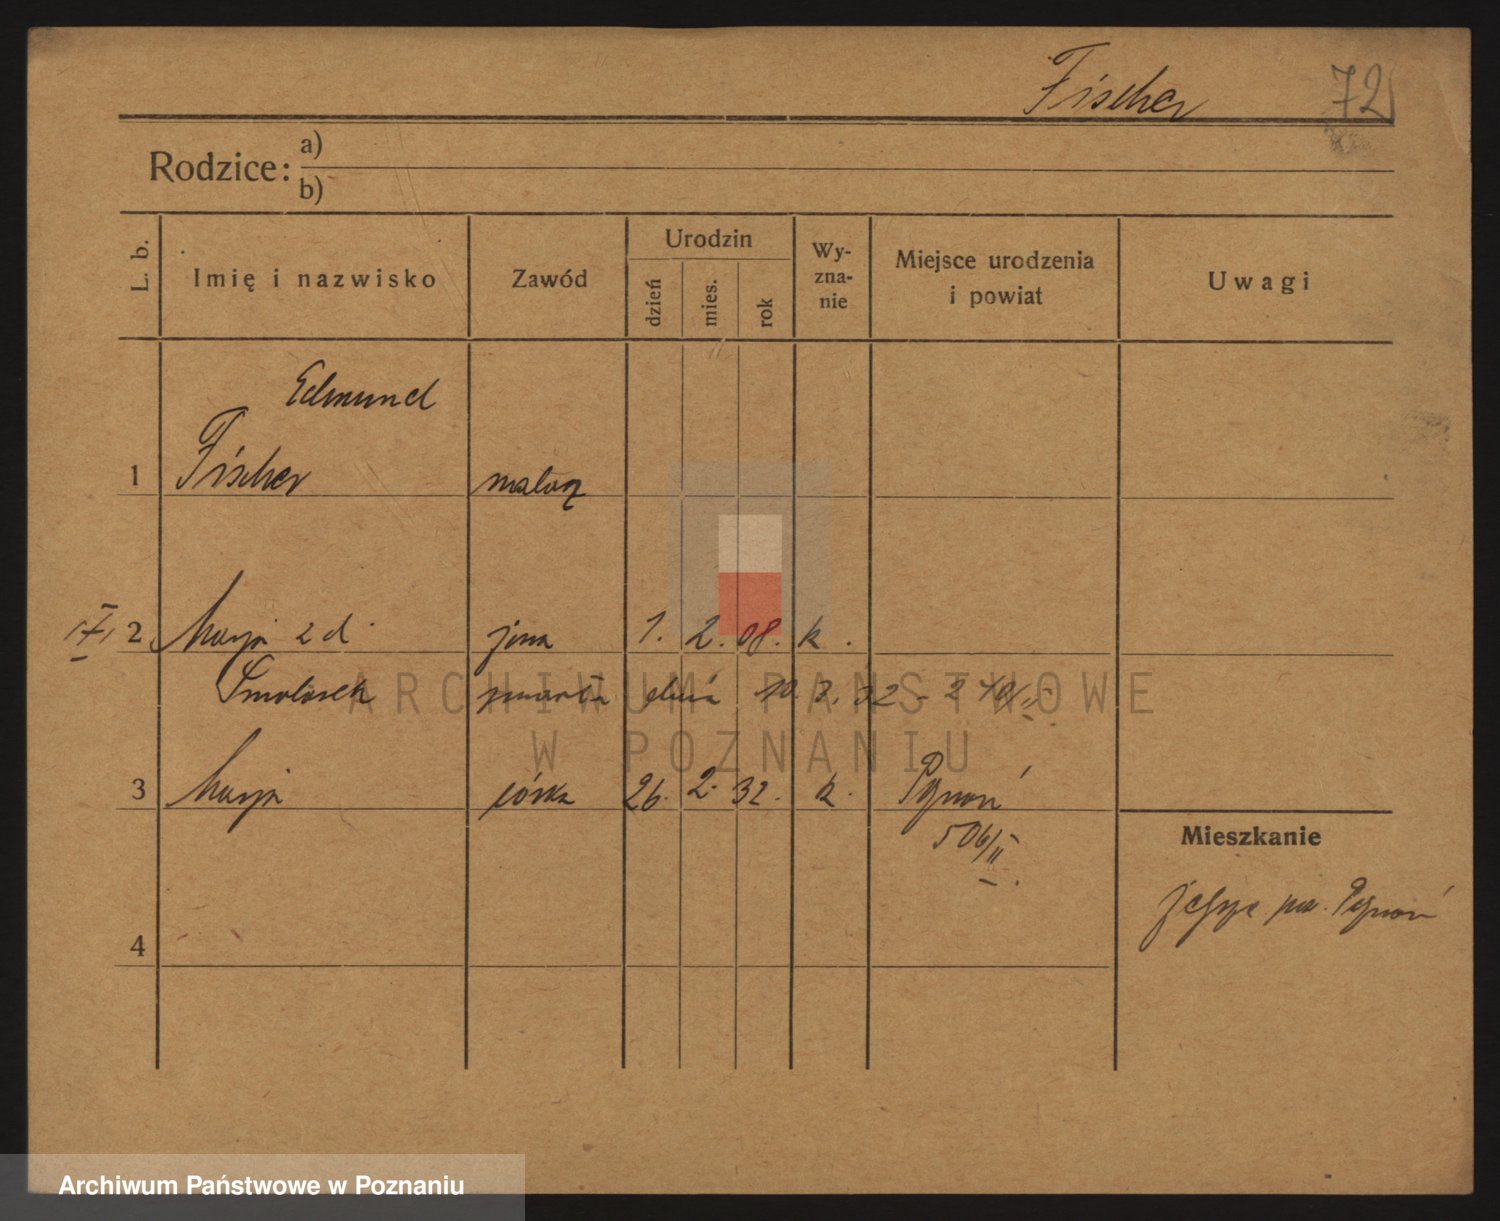 Fischer 72
Rodzice: a)
b)
L. b.
Imię i nazwisko
Zawód
Urodzin
dzień
mies.
rok
Wy-
zna-
nie
Miejsce urodzenia
i powiat
Uwagi
Edmund
1 Fischer malarz
2 Marja z d. żona 1. 2. 08. k.
Smolarek zmarła dnia 10. 3. 32
3 Marja córka 26. 2. 32. k. Poznań
506/II
Mieszkanie
Poznań
4
ARCHIWUM PAŃSTWOWE
W POZNANIU
Archiwum Państwowe w Poznaniu